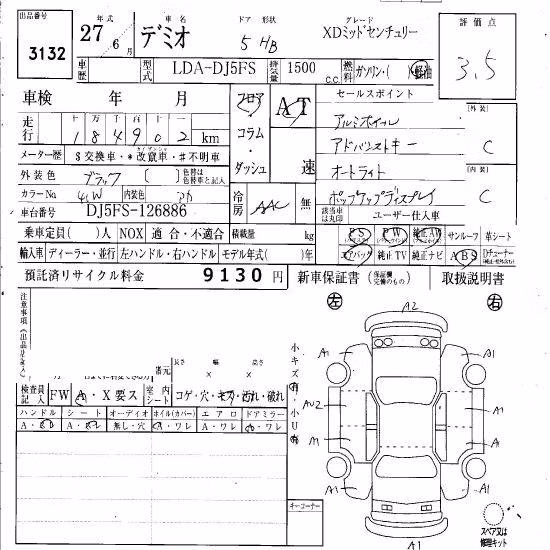 出品番号
3132
年式
27年
6月
車名
デミオ
ドア 形状
5 HB
グレード
XDミッドセンチュリー
評価点
3.5
車歴
型式
LDA-DJ5FS
排気量
1500
c.c.
燃料
ガソリン・( )軽油
車検 年 月
フロア・コラム・ダッシュ
AT
速
セールスポイント
アルミホイル
アドバンストキー
オートライト
ポップアップディスプレイ
外装
C
内装
C
走行
十 万 千 百 十 一
184902 km
メーター歴
$ 交換車・* 改竄車・# 不明車
外装色
ブラック
色替は色替車と記入
カラーNo
41W
内装色
冷房
AAC
無
該当車は丸印
ユーザー仕入車
車台番号
DJ5FS-126886
乗車定員( )人
NOX
適合・不適合
積載量
kg
PS
PW
純正AW
サンルーフ
革シート
輸入車
ディーラー・並行
左ハンドル・右ハンドル
モデル年式( )年
エアバッグ
純正TV
純正ナビ
ABS
Dチューナー
預託済リサイクル料金
9130円
新車保証書
取扱説明書
注意事項
左
右
A2
A1
A1
AU2
A1
A1
A1
A1
A1
A1
長さ 幅 高さ
× ×
検査員記入
FW
A・X要ス
室内シート
コゲ・穴・キズ・汚れ・破れ
ハンドル
シート
オーディオ
ホイル(カバー)
エアロ
ドアミラー
無し・穴
A・ワレ
A・ワレ
A・ワレ
小キズ有・小U有
キーコーナー
スペア又は修理キット